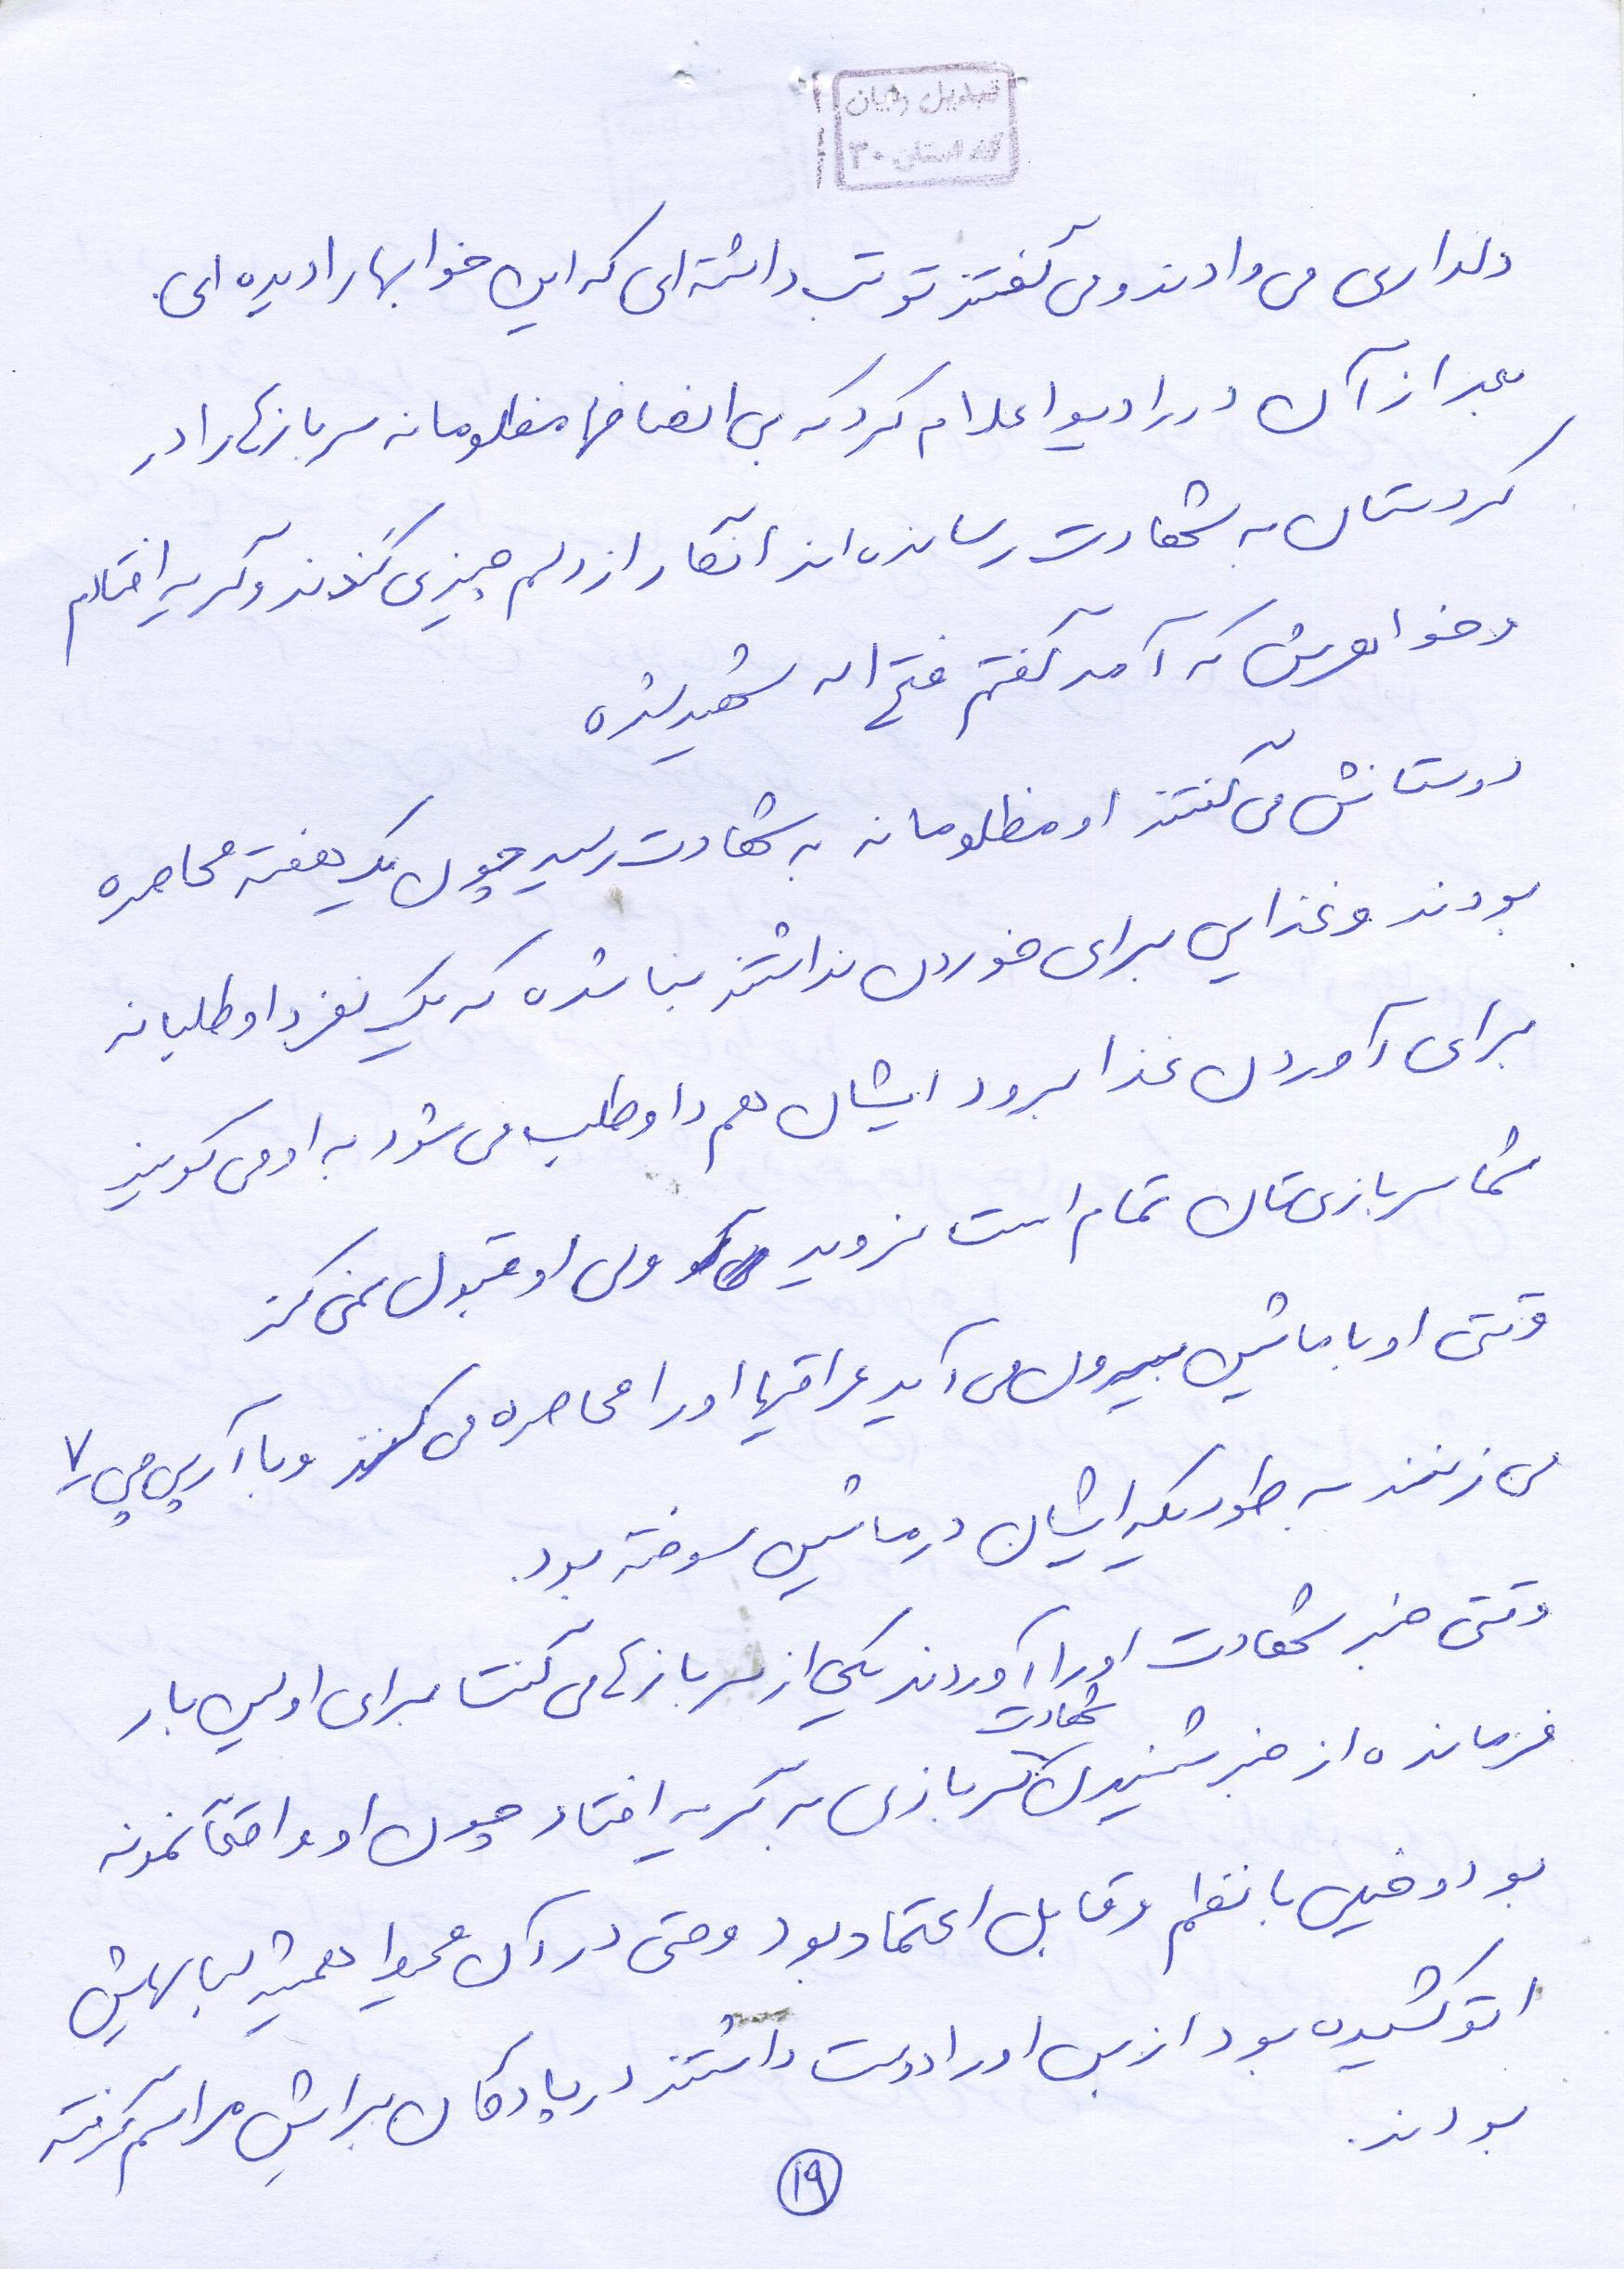 دلداری می دادند و می گفتند تو تب داشته ای که این خوابها را دیده ای.
بعد از آن در رادیو اعلام کرد که بی انصافها مظلومانه سربازها را در
کردستان به شهادت رسانده اند انگار از دلم چیزی کندند و گریه افتادم
و خواهرش که آمد گفتم فتح اله شهید شده
دوستانش می گفتند او مظلومانه به شهادت رسید چون یک هفته محاصره
بودند و غذایی برای خوردن نداشتند بنا شده که یک نفر داوطلبانه
برای آوردن غذا برود ایشان هم داوطلب می شود به او می گویند
شما سربازی تان تمام است نروید ولی او قبول نمی کند
وقتی او با ماشین بیرون می آید عراقیها او را محاصره می کنند و با آرپی جی ۷
می زنند به طوریکه ایشان در ماشین سوخته بود.
وقتی خبر شهادت او را آوردند یکی از سربازها می گفت برای اولین بار
فرمانده از خبر شنیدن شهادت سربازی به گریه افتاد چون او واقعاً نمونه
بود و خیلی با نظم و قابل اعتماد بود و حتی در آن محیط همیشه لباسهایش
اتو کشیده بود از بس او را دوست داشتند در پادگان برایش مراسم گرفته
بودند.
۱۹